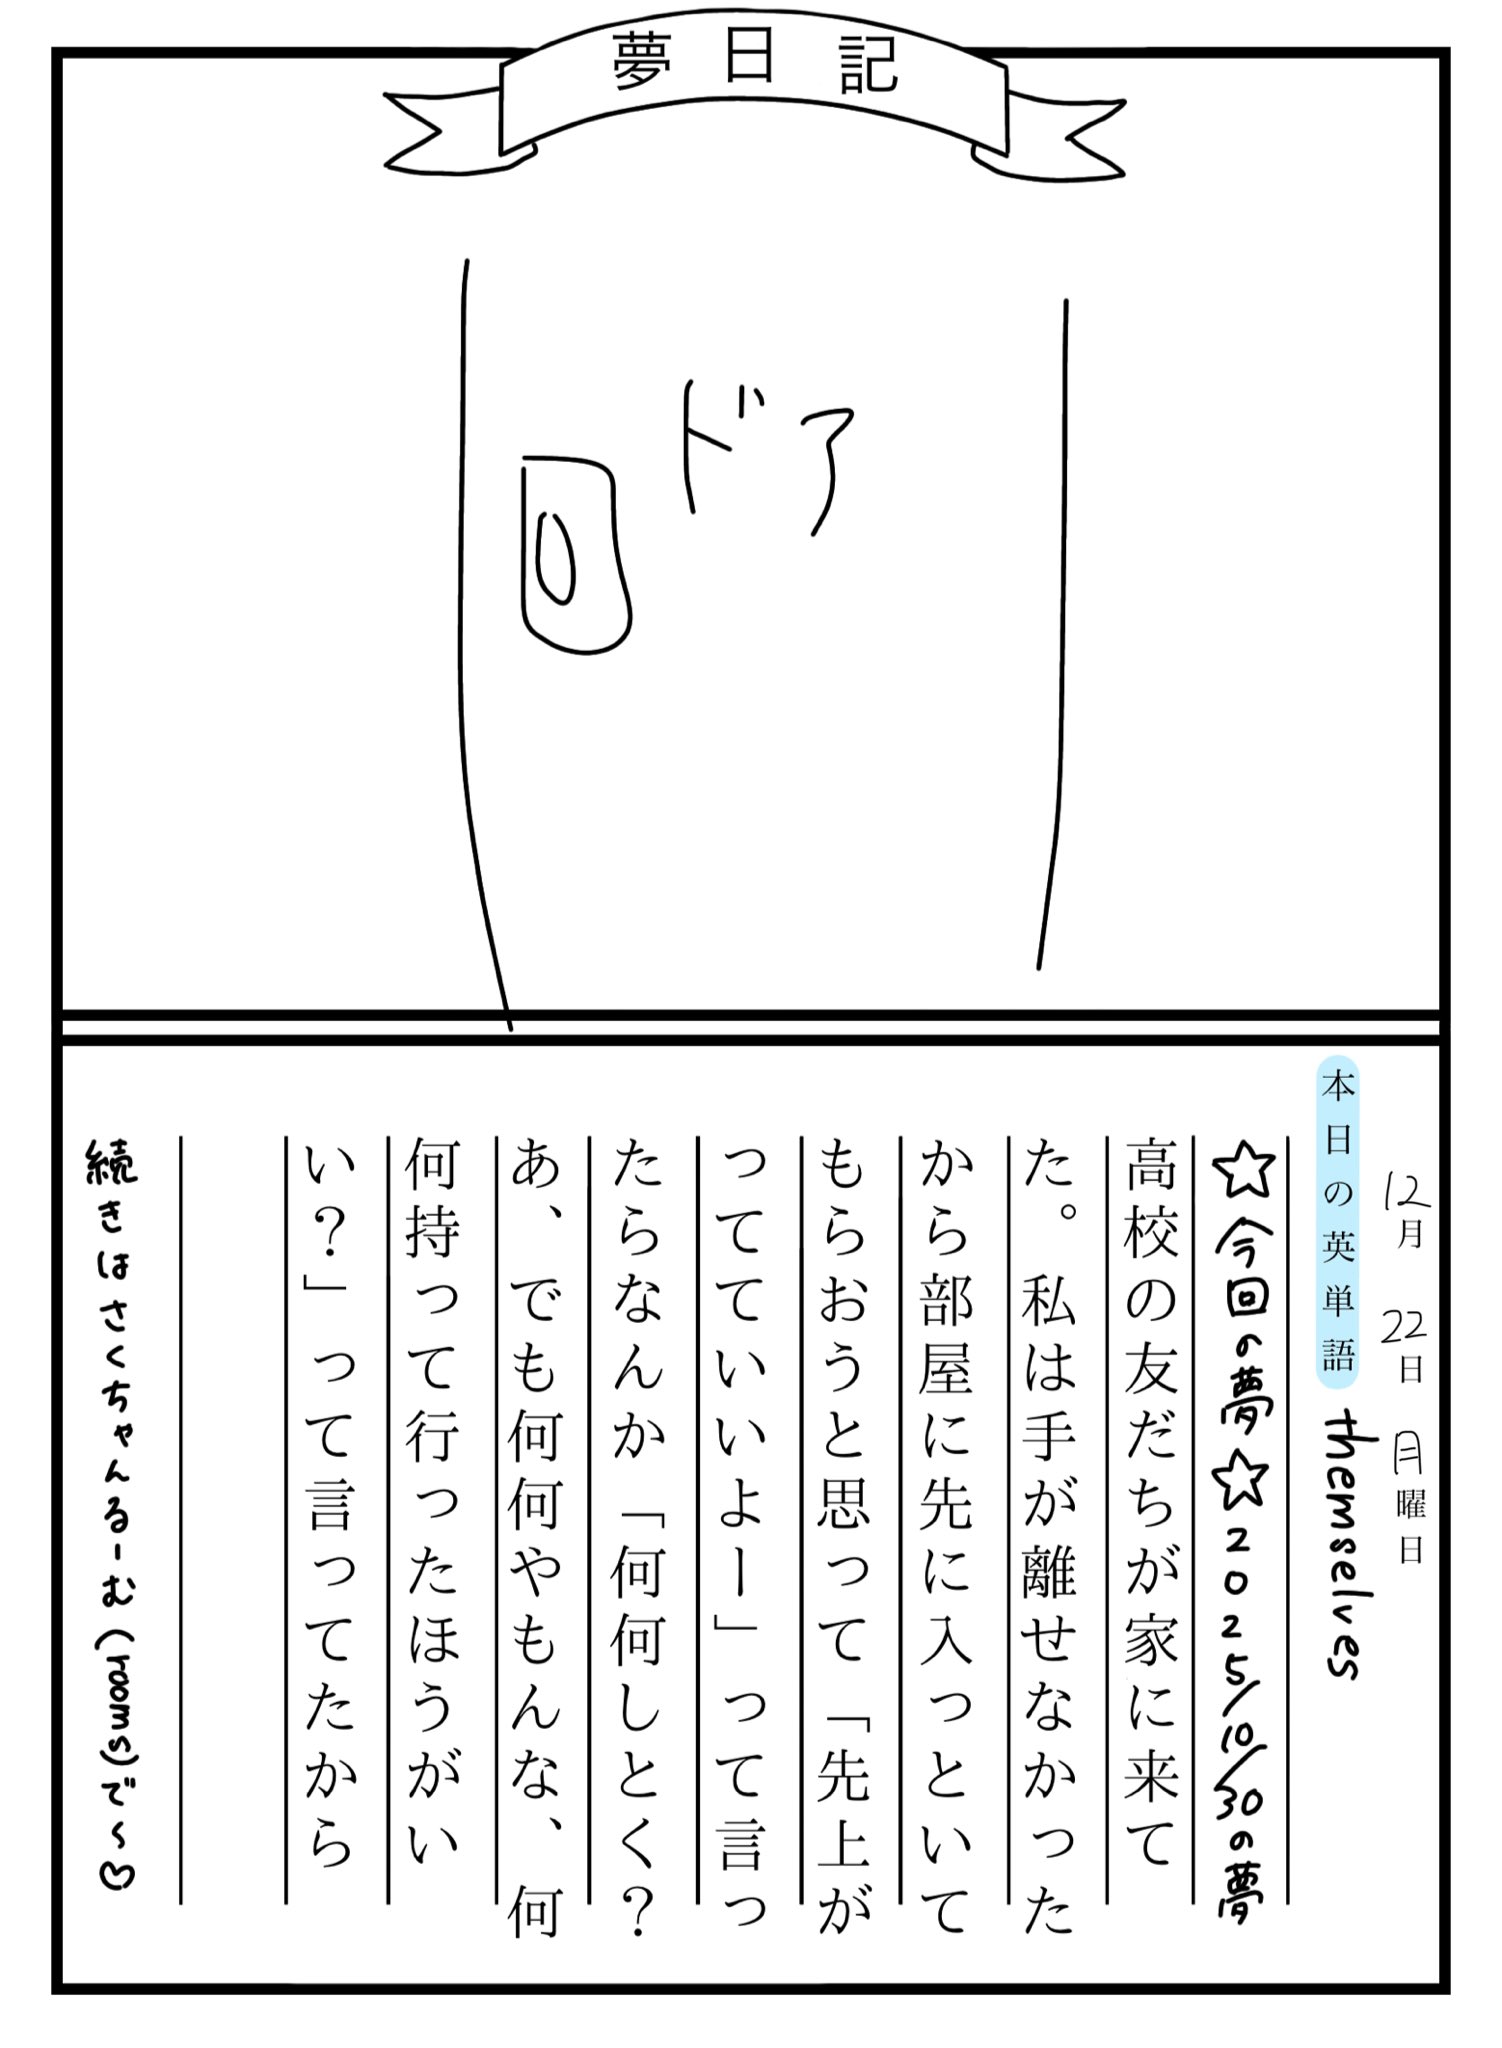 夢日記
ドア
12月 22日 月曜日
本日の英単語 themselves
☆今回の夢☆2025/10/30の夢
高校の友だちが家に来て
た。私は手が離せなかった
から部屋に先に入っといて
もらおうと思って「先上が
ってていいよー」って言っ
たらなんか「何何しとく？
あ、でも何何やもんな、何
何持って行ったほうがい
い？」って言ってたから
続きはさくちゃんるーむ(rooms)で〜♡